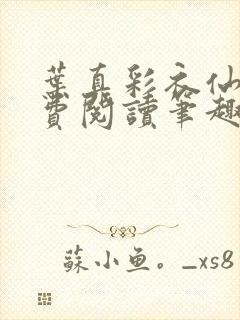 葉真彩衣仙
費閱讀筆趣
蘇小鱼。_xs8